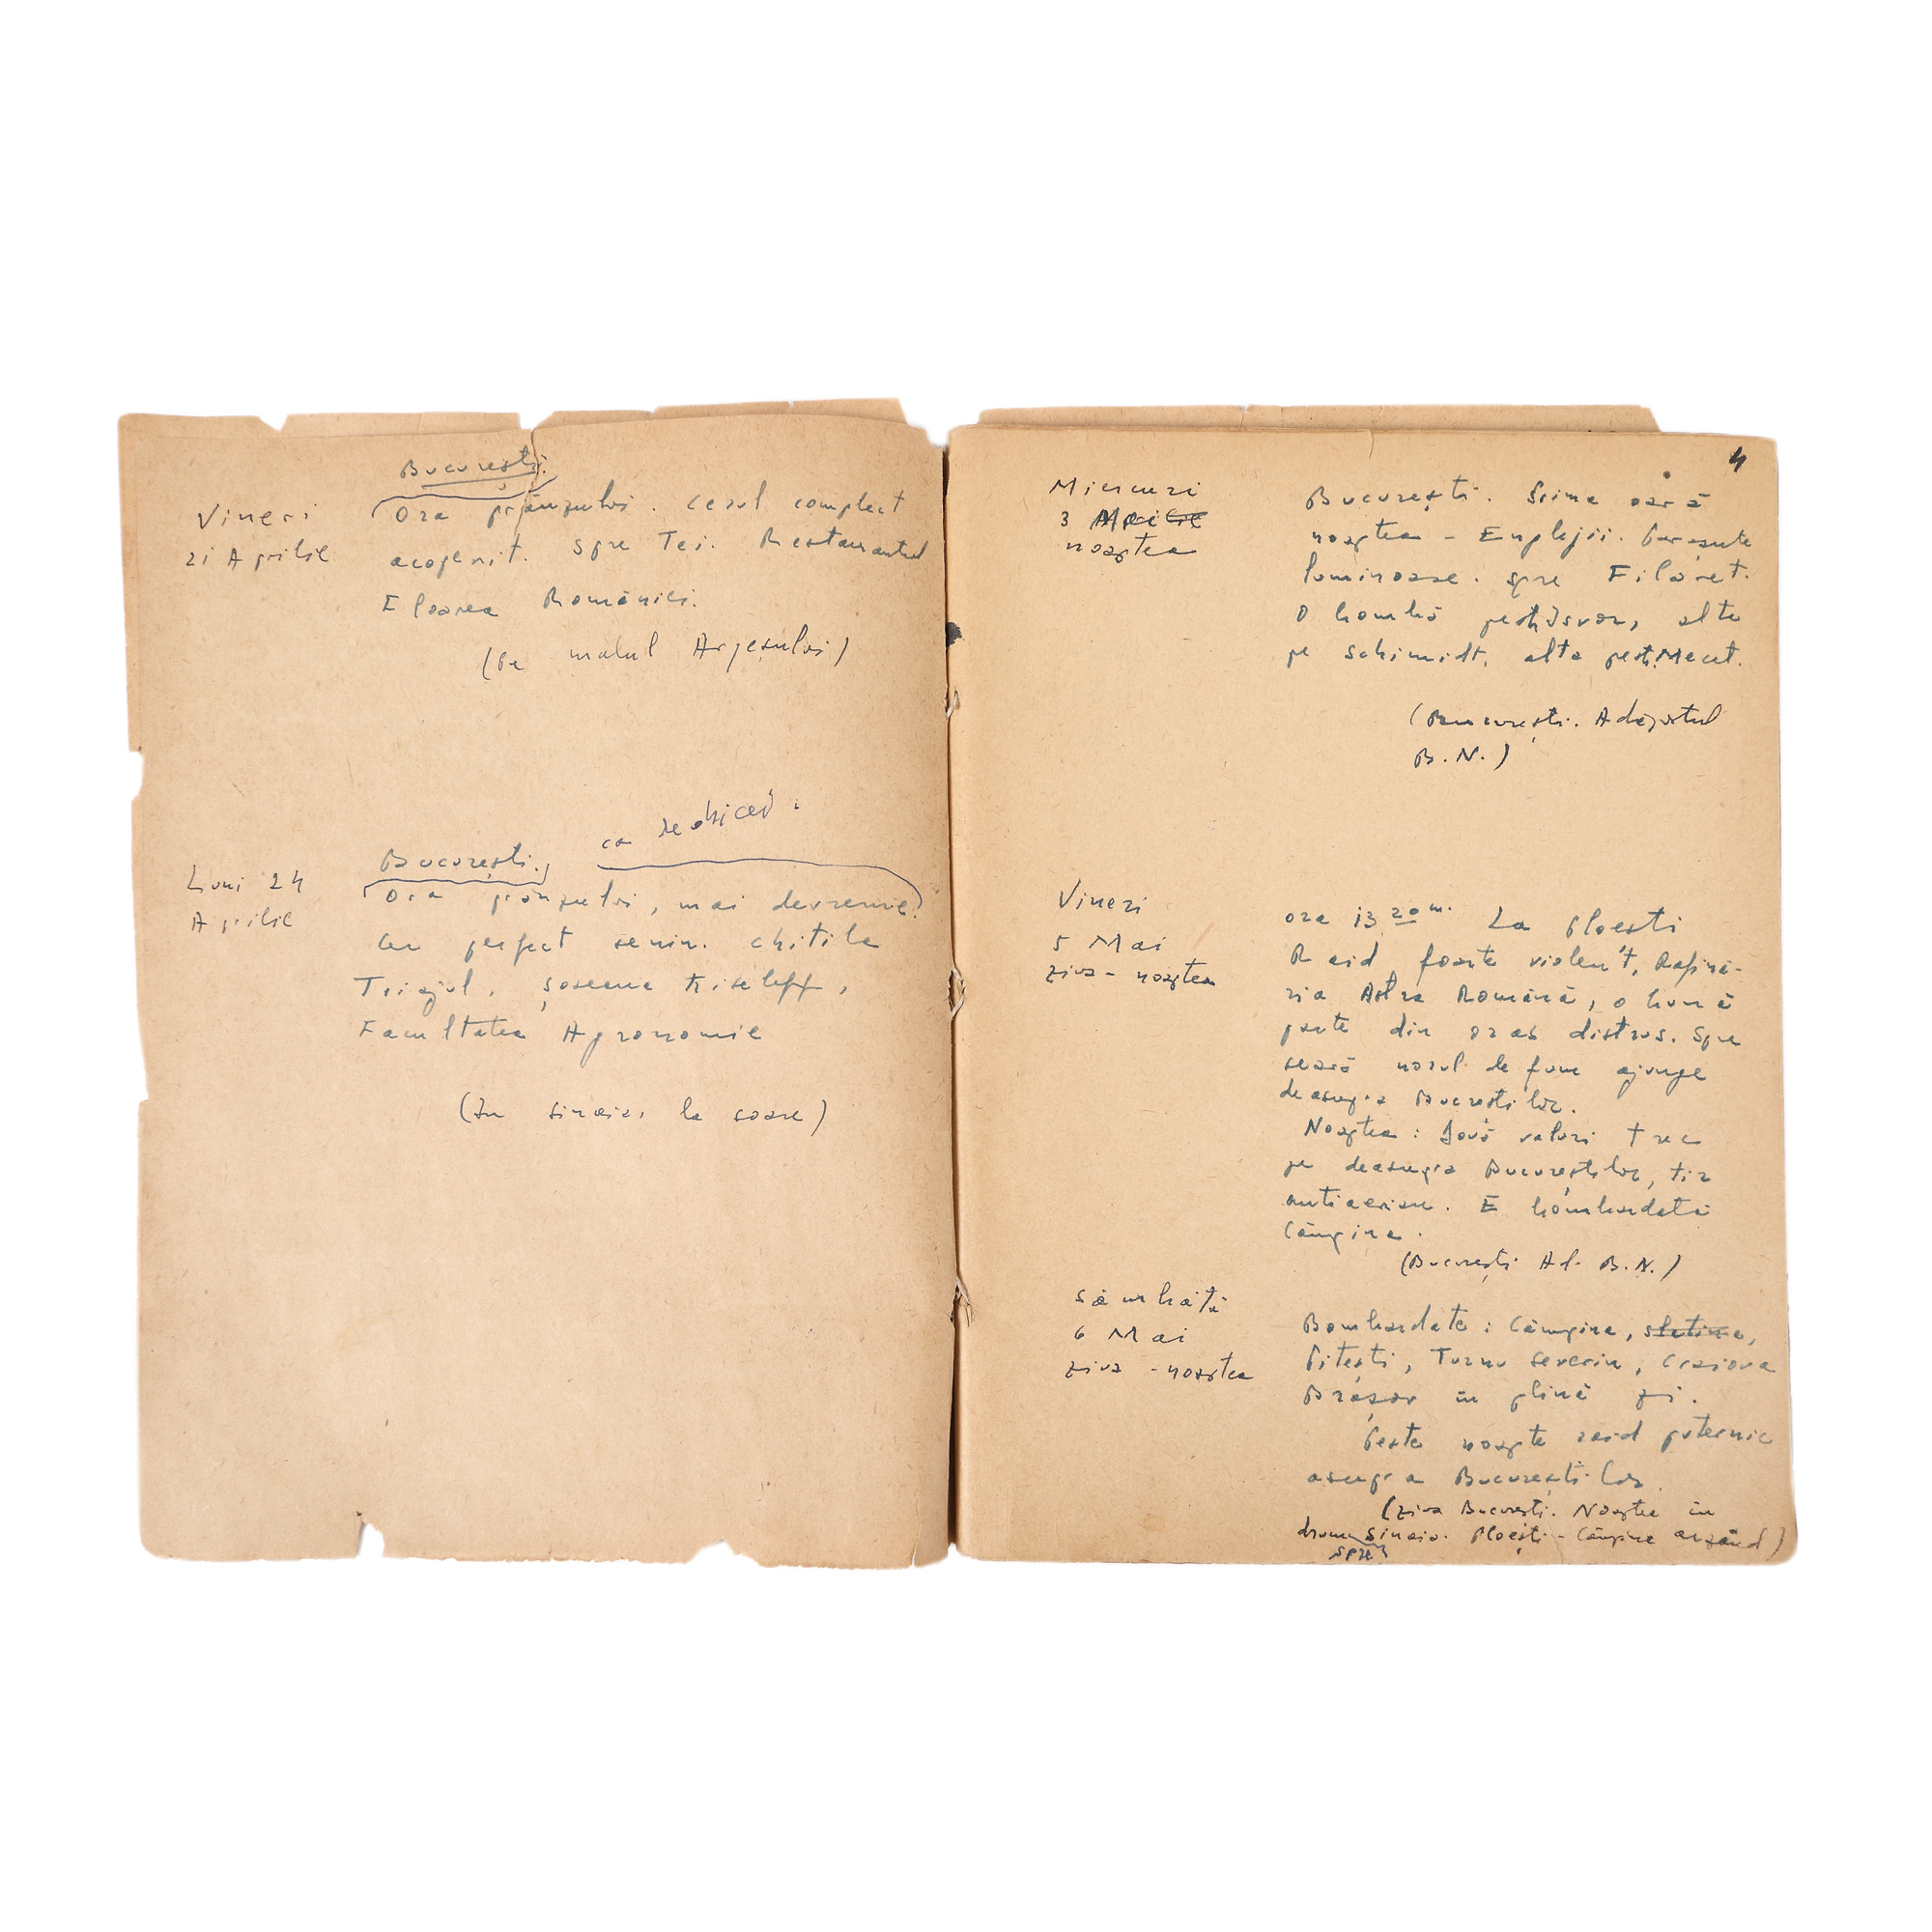 București.
Vineri
21 Aprilie
Ora prânzului. Cerul complect
acoperit. Spre Tei. Restaurantul
Floarea României.
(Pe malul Argeșului)
ca de obicei.
Luni 24
Aprilie
București.
Ora prânzului, mai devreme.
Cer perfect senin. Chitila
Triajul, șoseaua Kiseleff,
Facultatea Agronomie
(In Sinaia, la soare)
4
Miercuri
3 Aprilie
noaptea
București. Prima oară
noaptea - Englejii. Parașute
luminoase. Spre Filaret.
O bombă pe alte
pe Schimidt, alta peste Mecet.
(București. Adăpostul
B.N.)
Vineri
5 Mai
ziua - noaptea
ora 13 20 m. La Ploești
Raid foarte violent, Rafină-
ria Astra Română, o bună
parte din oraș distrus. Spre
seară norul de fum ajunge
deasupra Bucureștilor.
Noaptea: Două valuri trec
pe deasupra Bucureștilor, tir
antiaerian. E bombardată
Câmpina.
(București Ad. B.N.)
Sâmbătă
6 Mai
ziua - noaptea
Bombardate: Câmpina, Slatina,
Pitești, Turnu Severin, Craiova
Brașov în plină zi.
Peste noapte raid puternic
asupra Bucureștilor.
(Ziua București. Noaptea în
drum spre Sinaia. Ploești - Câmpina arzând)